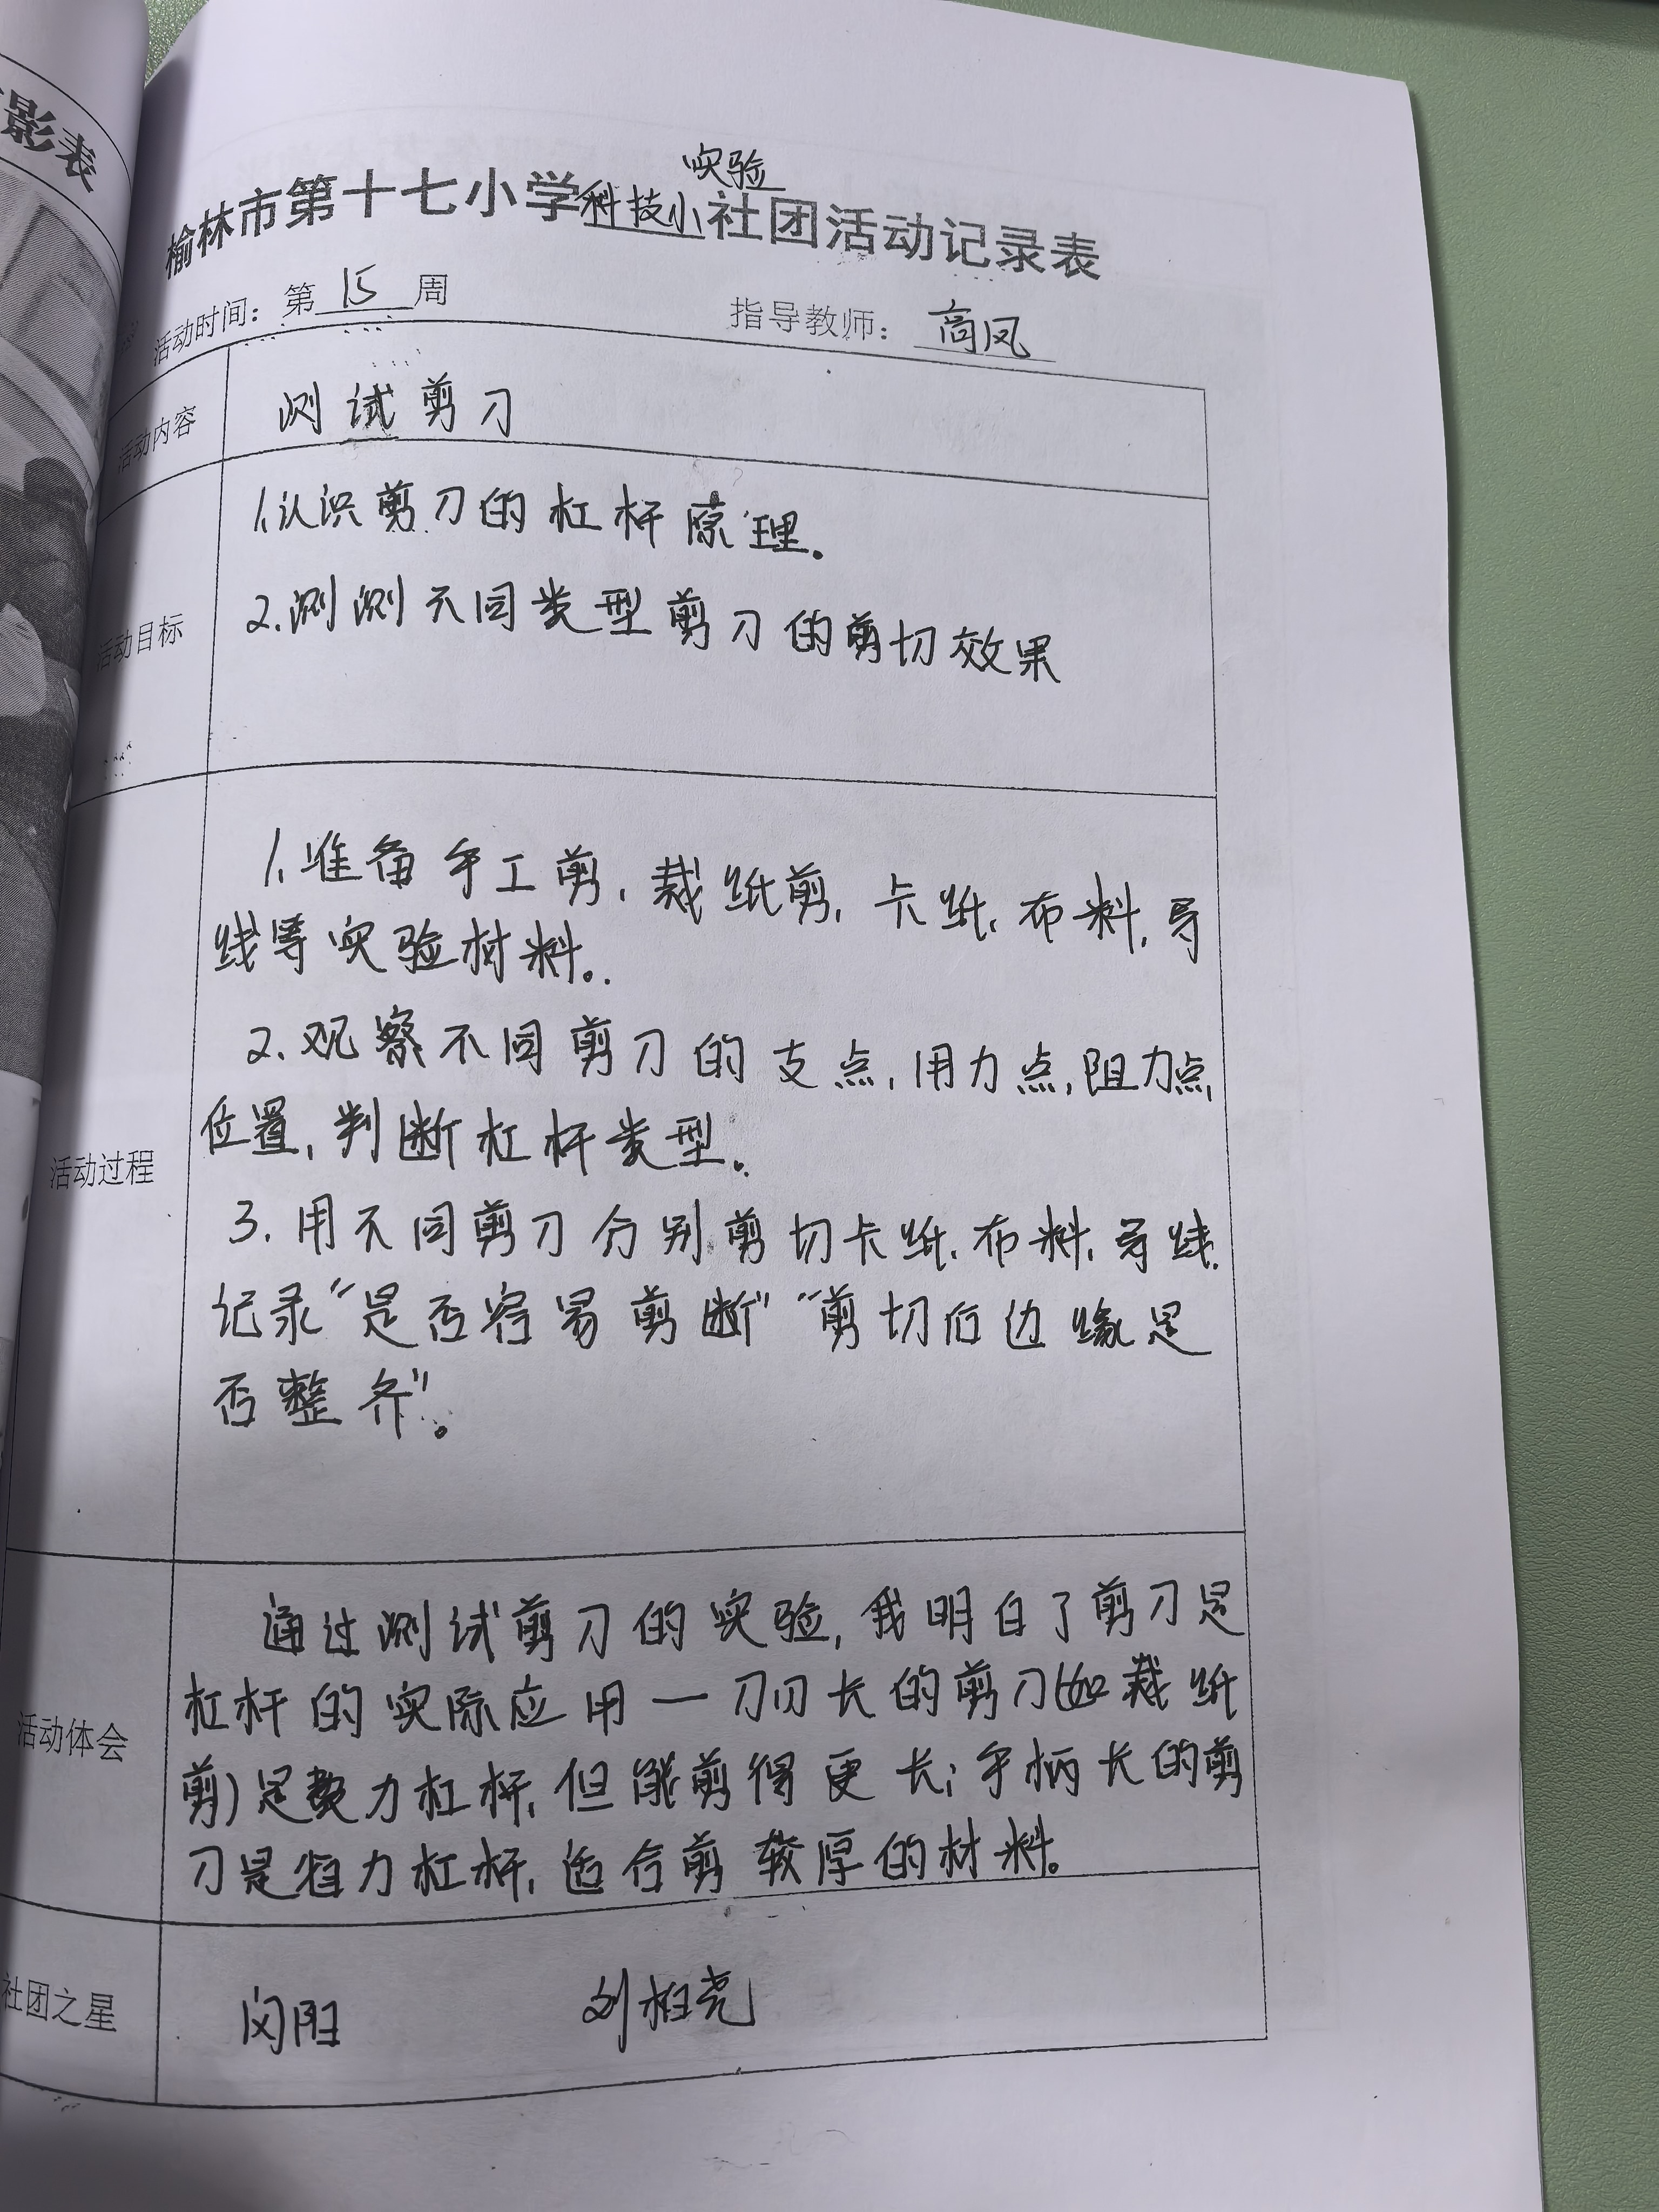 影表
实验
榆林市第十七小学科技小社团活动记录表
活动时间：第 15 周 指导教师：高凤
活动内容 测试剪刀
活动目标
1.认识剪刀的杠杆原理。
2.测测不同类型剪刀的剪切效果
活动过程
1.准备手工剪，裁纸剪，卡纸，布料，导
线等实验材料。
2.观察不同剪刀的支点，用力点，阻力点
位置，判断杠杆类型。
3.用不同剪刀分别剪切卡纸，布料，导线，
记录“是否容易剪断”“剪切后边缘是
否整齐”。
活动体会
通过测试剪刀的实验，我明白了剪刀是
杠杆的实际应用一刀刃长的剪刀(如裁纸
剪)是费力杠杆，但能剪得更长；手柄长的剪
刀是省力杠杆，适合剪较厚的材料。
社团之星 闵阳 刘柏尧